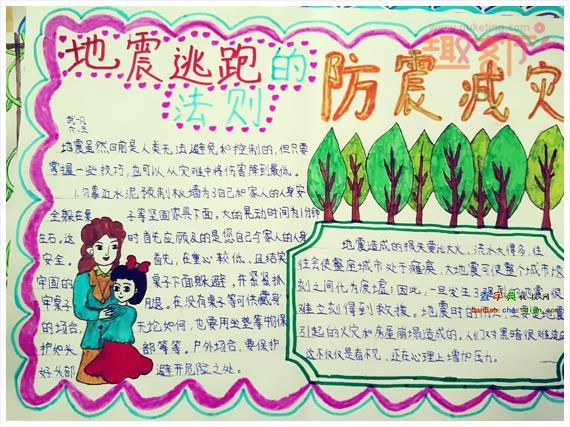 www.quketing.com
趣
地震逃跑的
法则
防震减灾
地震虽然目前是人类无法避免和控制的,但只要
掌握一些技巧,也可以从灾难中将伤害降到最低。
靠近水泥预制板墙 为自己和家人的人身安
全躲在桌 子等坚固家具下面,大的晃动时间为1分钟
左右,这 时首先应顾及的是您自己与家人的人身
安全。 首先,在重心较低、且结实
牢固的 桌子下面躲避,并紧抓
牢桌子 腿。在没有桌子等可供藏身
的场合, 无论如何,也要用坐垫等物保
护好头 部等等。户外场合,要保护
好头部 避开危险之处。
地震造成的损失要比大火、洪水大得多,往
往会使整座城市处于瘫痪,大地震可使整个城市顷
刻之间化为废墟;因此,一旦发生了强烈的地震,很
难立刻得到救援。地震时的
引起的火灾和房屋崩塌造成的。人们对黑暗很难适应
这不仅仅是看不见,还在心理上增加压力。
查字典